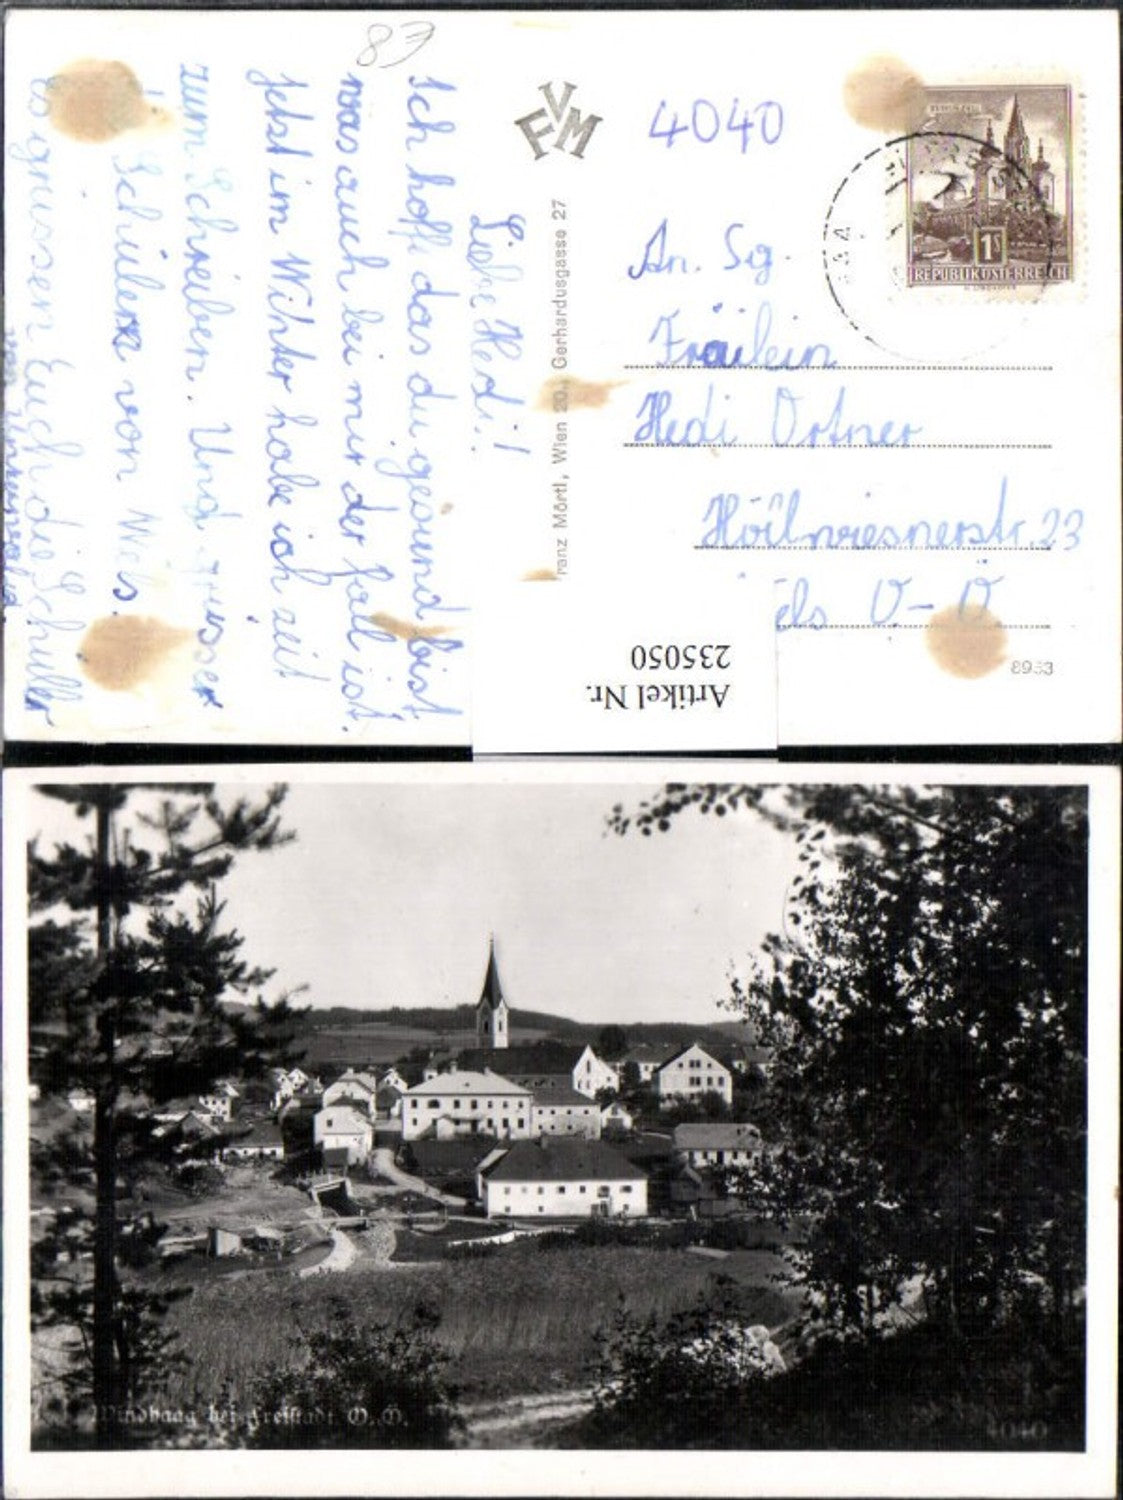 83
Liebe Hedi!
Ich hoffe das du gesund bist
was auch bei mir der fall ist.
Jetzt im Winter habe ich zeit
zum Schreiben. Und grüsse
Schüler von Wels.
Es grüssen Euch die Schüller
von
FVM
Franz Mörtl, Wien 20., Gerhardusgasse 27
4040
1S
REPUBLIK ÖSTERREICH
An. Sig.
Fräulein
Hedi Ortner
23
els O-Ö
8953
Artikel Nr.
235050
Windhaag bei Freistadt O.Ö.
4040